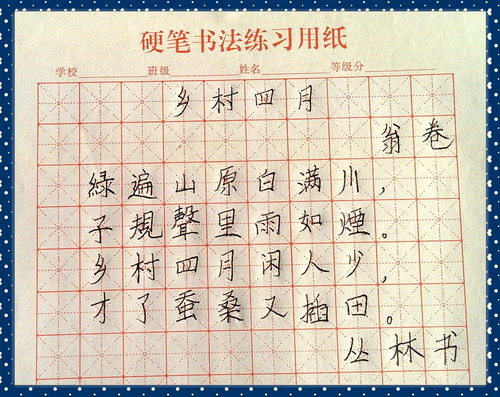 硬笔书法练习用纸
学校 班级 姓名 等级分
乡村四月
翁卷
綠遍山原白满川，
子規聲里雨如煙。
乡村四月闲人少，
才了蚕桑又插田。
丛林书